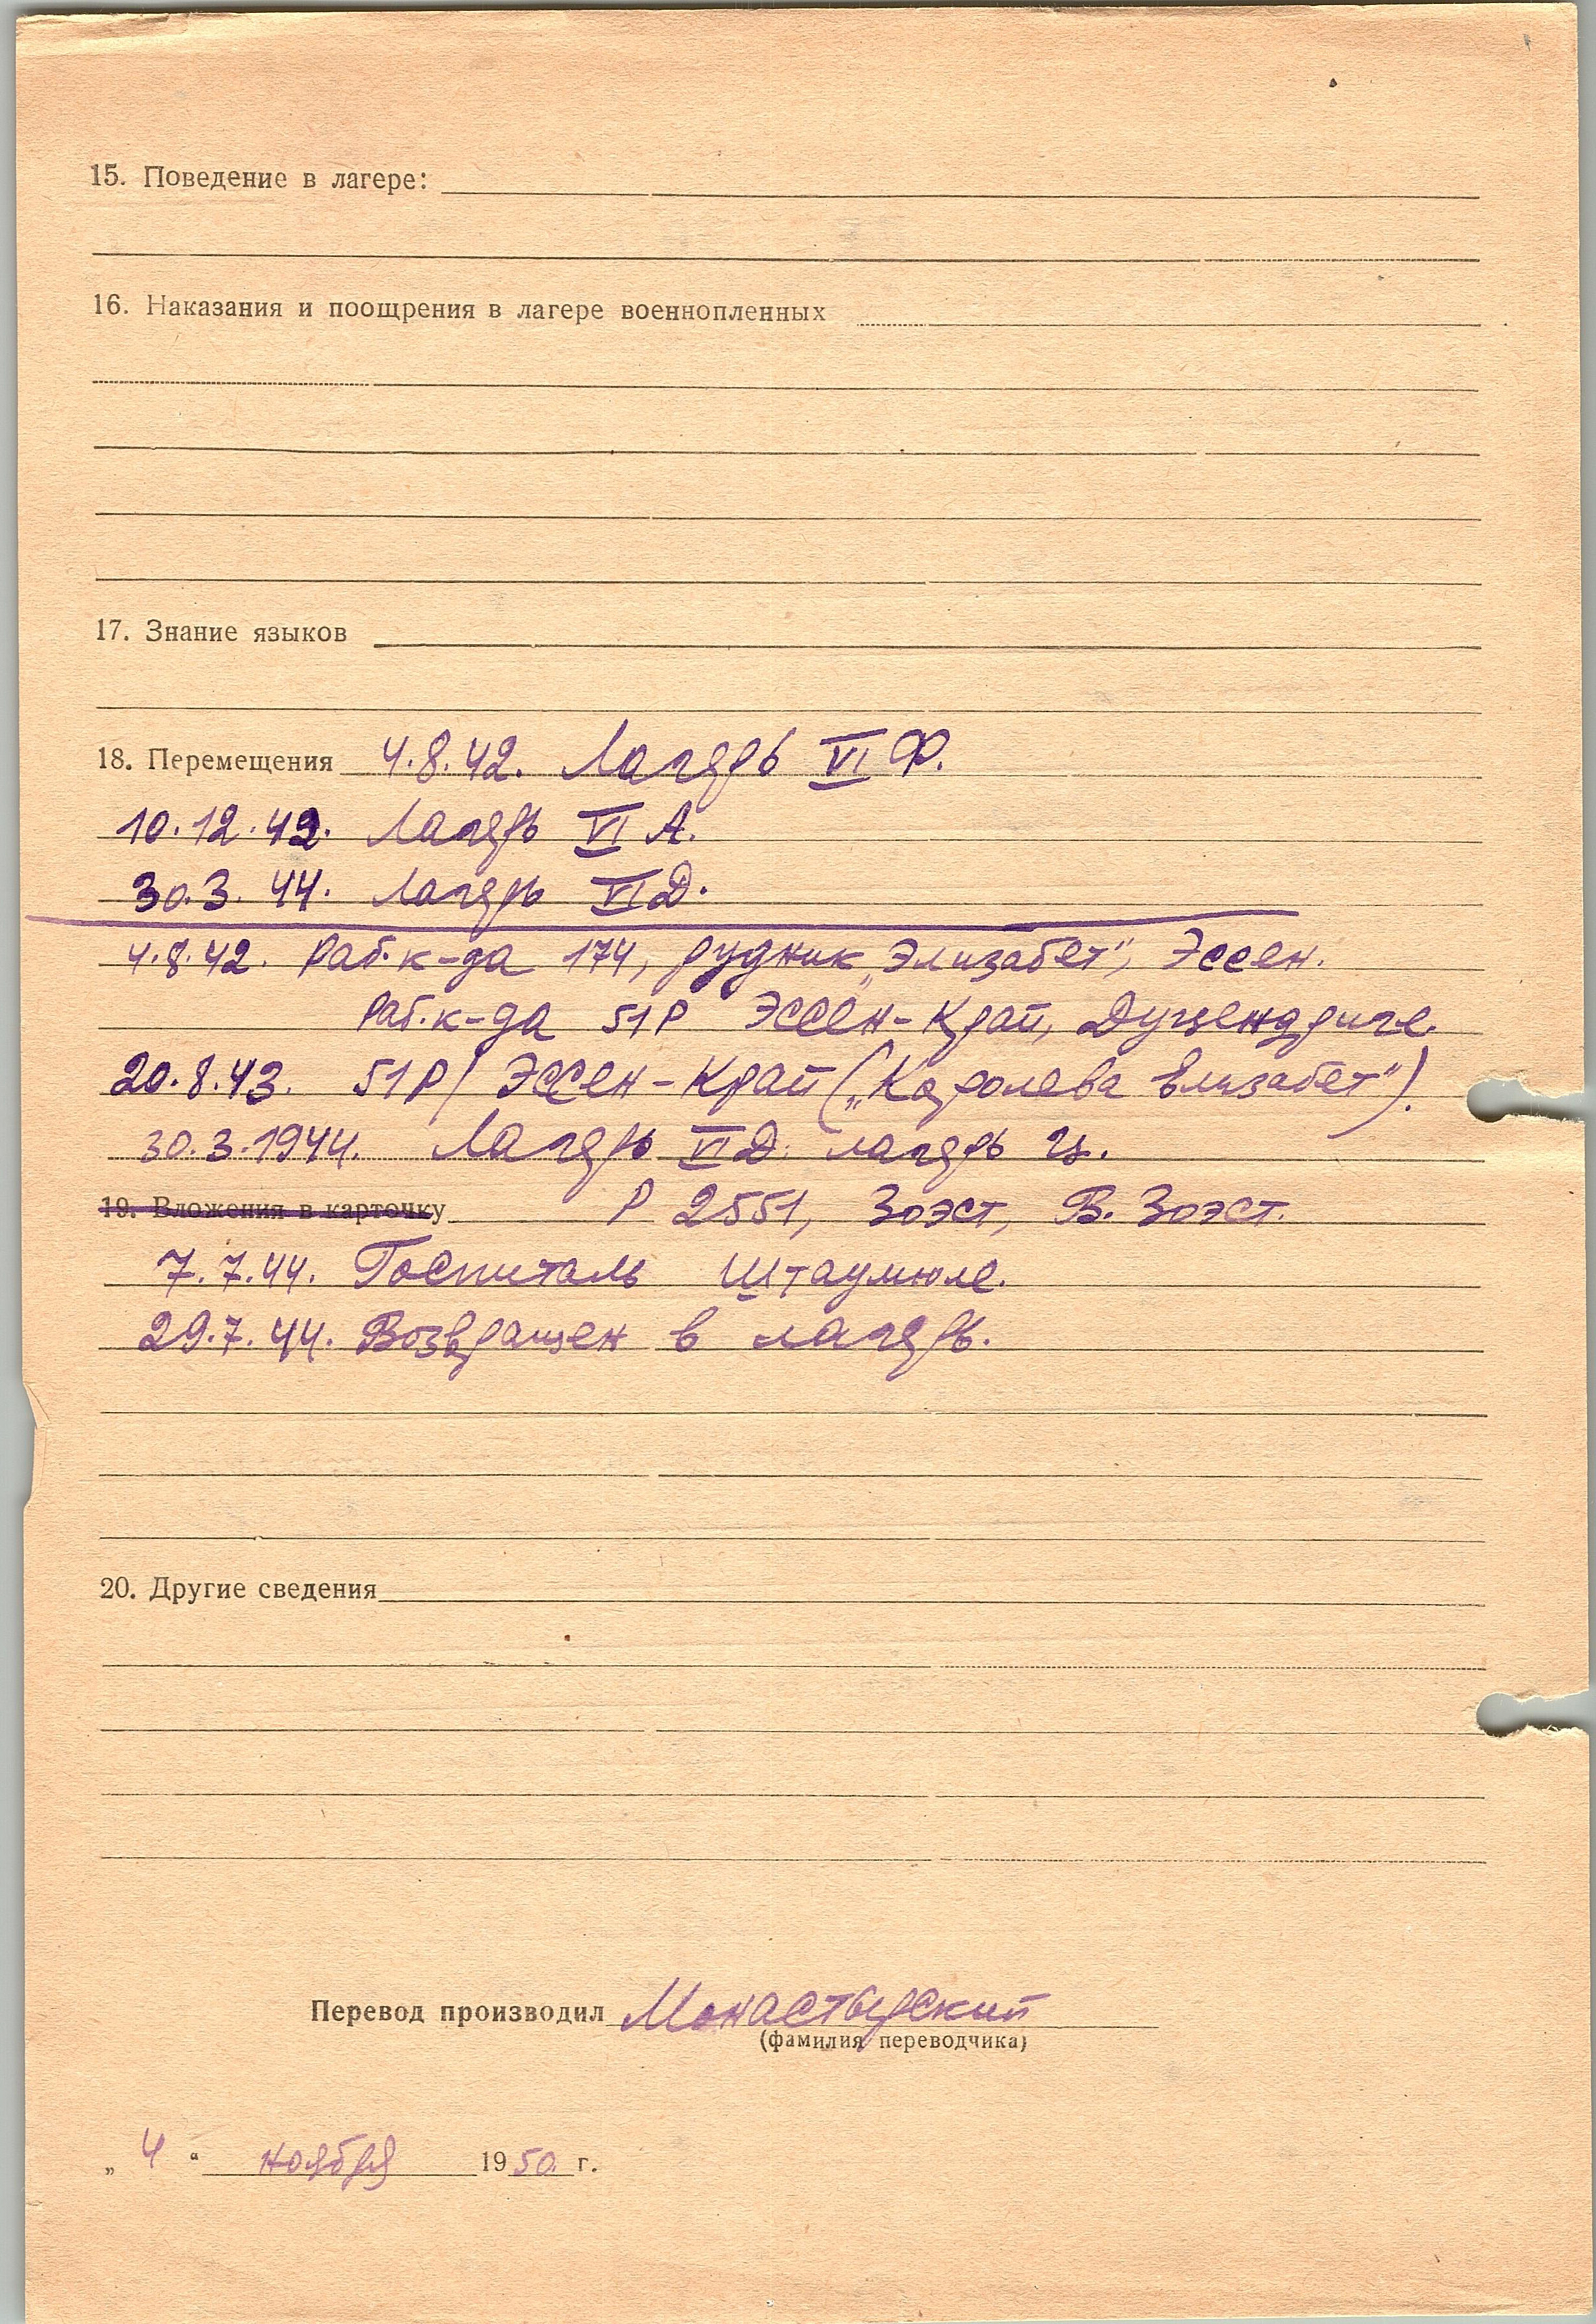 15. Поведение в лагере:
16. Наказания и поощрения в лагере военнопленных
17. Знание языков
18. Перемещения 4.8.42. Лагерь VI Ф.
10.12.42. Лагерь VI А.
30.3.44. Лагерь VI Д.
4.8.42. Раб. к-да 174, рудник „Элизабет", Эссен.
Раб. к-да 51Р Эссен-Край,
20.8.43. 51Р/ Эссен-Край („Королева Элизабет").
30.3.1944. Лагерь VI Д. лагерь
19. Вложения в карточку Р 2551, Зоэст, В. Зоэст.
7.7.44. Госпиталь Штаумюле.
29.7.44. Возвращен в лагерь.
20. Другие сведения
Перевод производил Монастырский
(фамилия переводчика)
„ 4 “ ноября 1950 г.